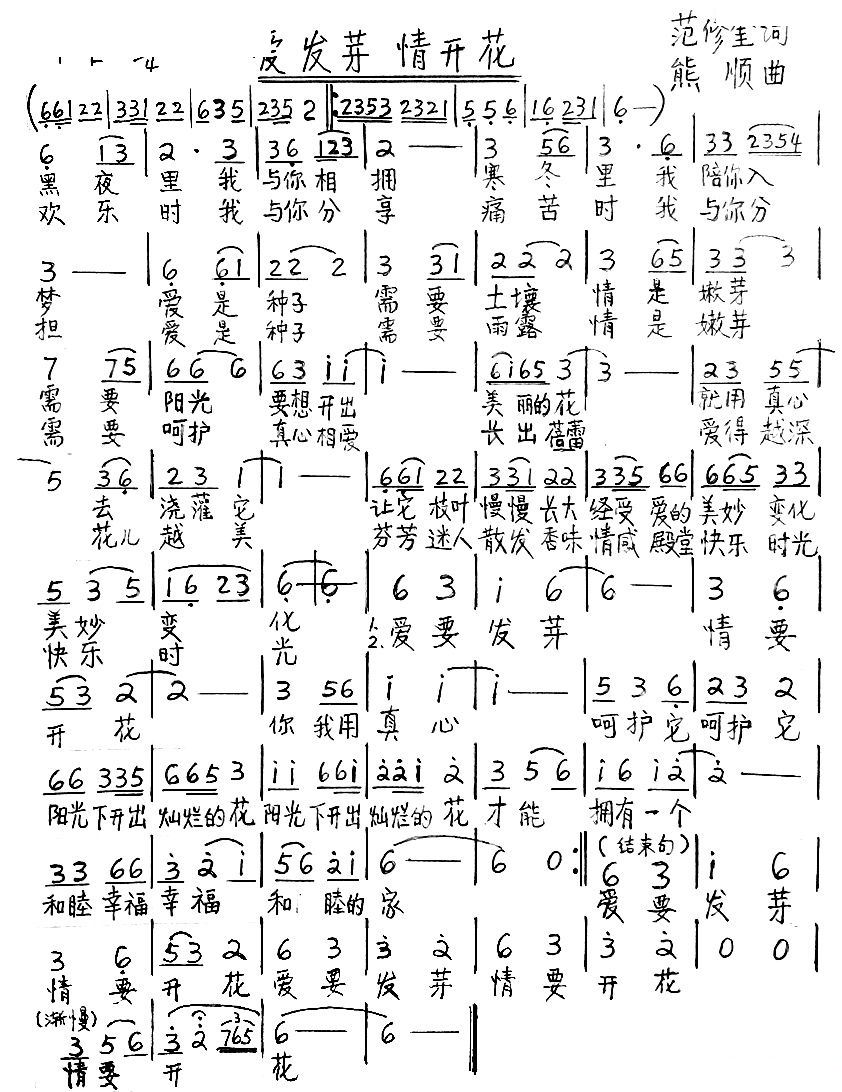 爱发芽 情开花
范修奎词
熊 顺 曲
4
(661 22 | 331 22 | 635 | 235 2 ‖: 2353 2321 | 5 5 6 | 16 231 | 6 — )
6 13 | 2 · 3 | 36 123 | 2 — | 3 56 | 3 · 6 | 33 2354 |
黑 夜 里 我 与你 相 拥 寒 冬 里 我 陪你 入
欢 乐 时 我 与你 分 享 痛 苦 时 我 与你 分
3 — | 6 61 | 22 2 | 3 31 | 22 2 | 3 65 | 33 3 |
梦 爱 是 种子 需 要 土壤 情 是 嫩芽
担 爱 是 种子 需 要 雨露 情 是 嫩芽
7 75 | 66 6 | 63 ii | i — | 6i65 3 | 3 — | 23 55 |
需 要 阳光 要想 开出 美 丽的 花 就用 真心
需 要 呵护 真心 相爱 长 出 蓓蕾 爱得 越深
5 36 | 23 1 | 1 — | 661 22 | 331 22 | 335 66 | 665 33 |
去 浇灌 它 让它 枝叶 慢慢 长大 经受 爱的 美妙 变化
花儿 越 美 芬芳 迷人 散发 香味 情感 殿堂 快乐 时光
5 3 5 | 16 23 | 6 — | 6 — | 6 3 | i 6 | 6 — | 3 6 |
美 妙 变 化 1.2. 爱 要 发 芽 情 要
快 乐 时 光
53 2 | 2 — | 3 56 | i i | i — | 5 3 6 | 23 2 |
开 花 你 我用 真 心 呵护它 呵护 它
66 335 | 665 3 | ii 66i | 22i 2 | 3 56 | i6 i2 | 2 — |
阳光 下开出 灿烂的 花 阳光 下开出 灿烂的 花 才 能 拥有 一个
(结束句)
33 66 | 3 2 i | 56 2i | 6 — | 6 0 :‖ 6 3 | i 6 |
和睦 幸福 幸 福 和 睦的 家 爱 要 发 芽
3 6 | 53 2 | 6 3 | 3 2 | 6 3 | 3 2 | 0 0 |
情 要 开 花 爱 要 发 芽 情 要 开 花
(渐慢)
3 5 6 | 3 2 765 | 6 — | 6 — ‖
情 要 开 花